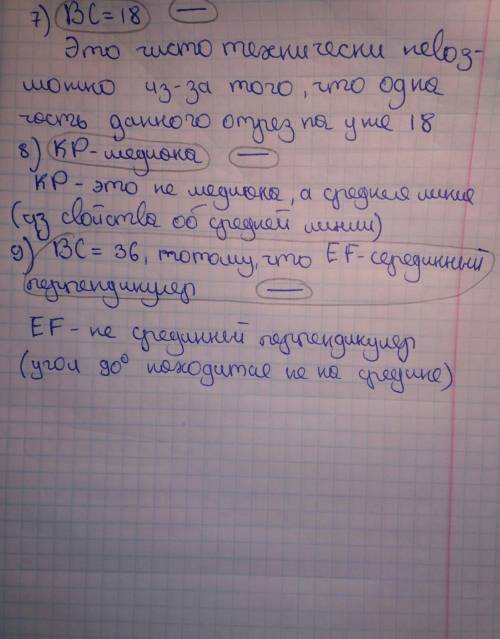 7) BC = 18 —
Это чисто технически невоз-
можно из-за того, что одна
часть данного отрезка уже 18
8) KP - медиана —
KP - это не медиана, а средняя линия
(из свойства об средней линии)
9) BC = 36, потому, что EF - серединный
перпендикуляр —
EF - не срединней перпендикуляр
(угол 90° находится не на средине)